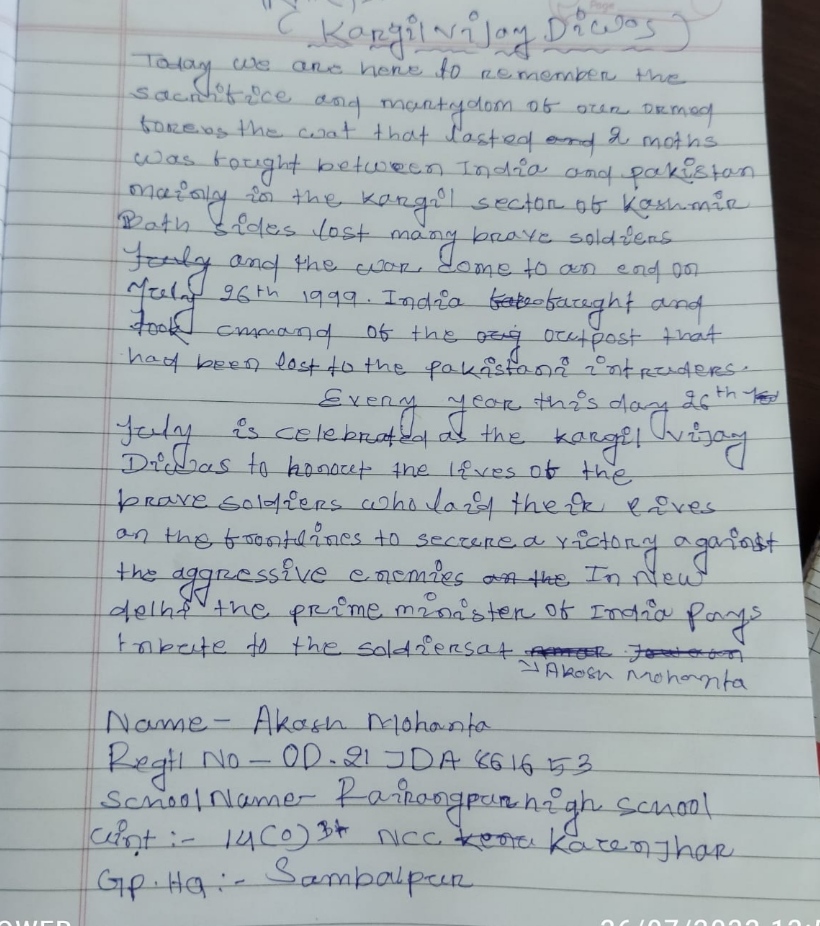 ( Kargil Vijay Diwas )
Today we are here to remember the
sacrifice and martydom of our ormed
forces the wat that lasted and 2 moths
was fought between India and pakistan
mainly in the kargil sector of Kashmir
Both sides lost many brave soldiers
July and the war come to an end on
July 26th 1999. India faught and
took cmmand of the outpost that
had been lost to the pakistani intruders.
Every year this day 26th
July is celebrated as the kargil vijay
Diwas to honout the lives of the
brave soldiers who laid their lives
on the frontlines to secure a victory against
the aggressive enemies on the In New
delhi the prime minister of India pays
tribute to the soldiersat
Akash Mohanta
Name - Akash Mohanta
Regtl No - OD.21 JDA 861653
School Name - Rairangpur high school
Uint :- 14(O) NCC Keeonjhar
Gp. Hq :- Sambalpur
26/07/2022